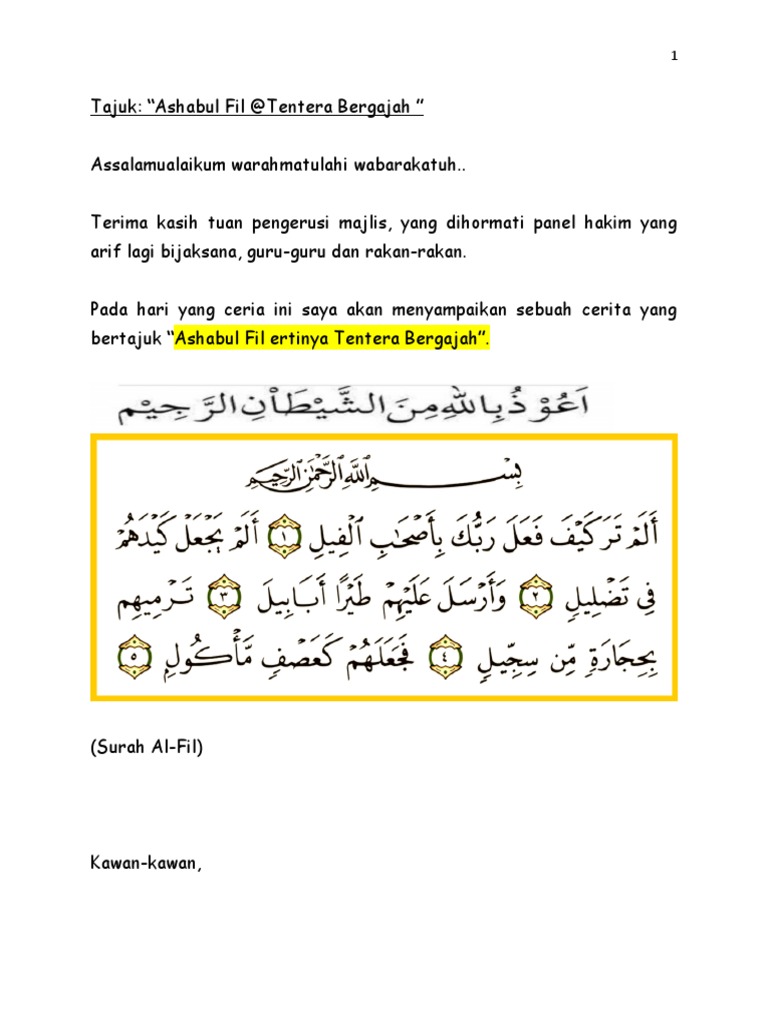 1
Tajuk: “Ashabul Fil @Tentera Bergajah ”
Assalamualaikum warahmatulahi wabarakatuh..
Terima kasih tuan pengerusi majlis, yang dihormati panel hakim yang
arif lagi bijaksana, guru-guru dan rakan-rakan.
Pada hari yang ceria ini saya akan menyampaikan sebuah cerita yang
bertajuk “Ashabul Fil ertinya Tentera Bergajah”.
اَعُوْذُ بِاللهِ مِنَ الشَّيْطَانِ الرَّجِيْمِ
بِسْمِ ٱللَّهِ ٱلرَّحْمَٰنِ ٱلرَّحِيمِ
أَلَمْ تَرَ كَيْفَ فَعَلَ رَبُّكَ بِأَصْحَٰبِ ٱلْفِيلِ ١ أَلَمْ يَجْعَلْ كَيْدَهُمْ
فِي تَضْلِيلٍ ٢ وَأَرْسَلَ عَلَيْهِمْ طَيْرًا أَبَابِيلَ ٣ تَرْمِيهِم
بِحِجَارَةٍ مِّن سِجِّيلٍ ٤ فَجَعَلَهُمْ كَعَصْفٍ مَّأْكُولٍ ٥
(Surah Al-Fil)
Kawan-kawan,